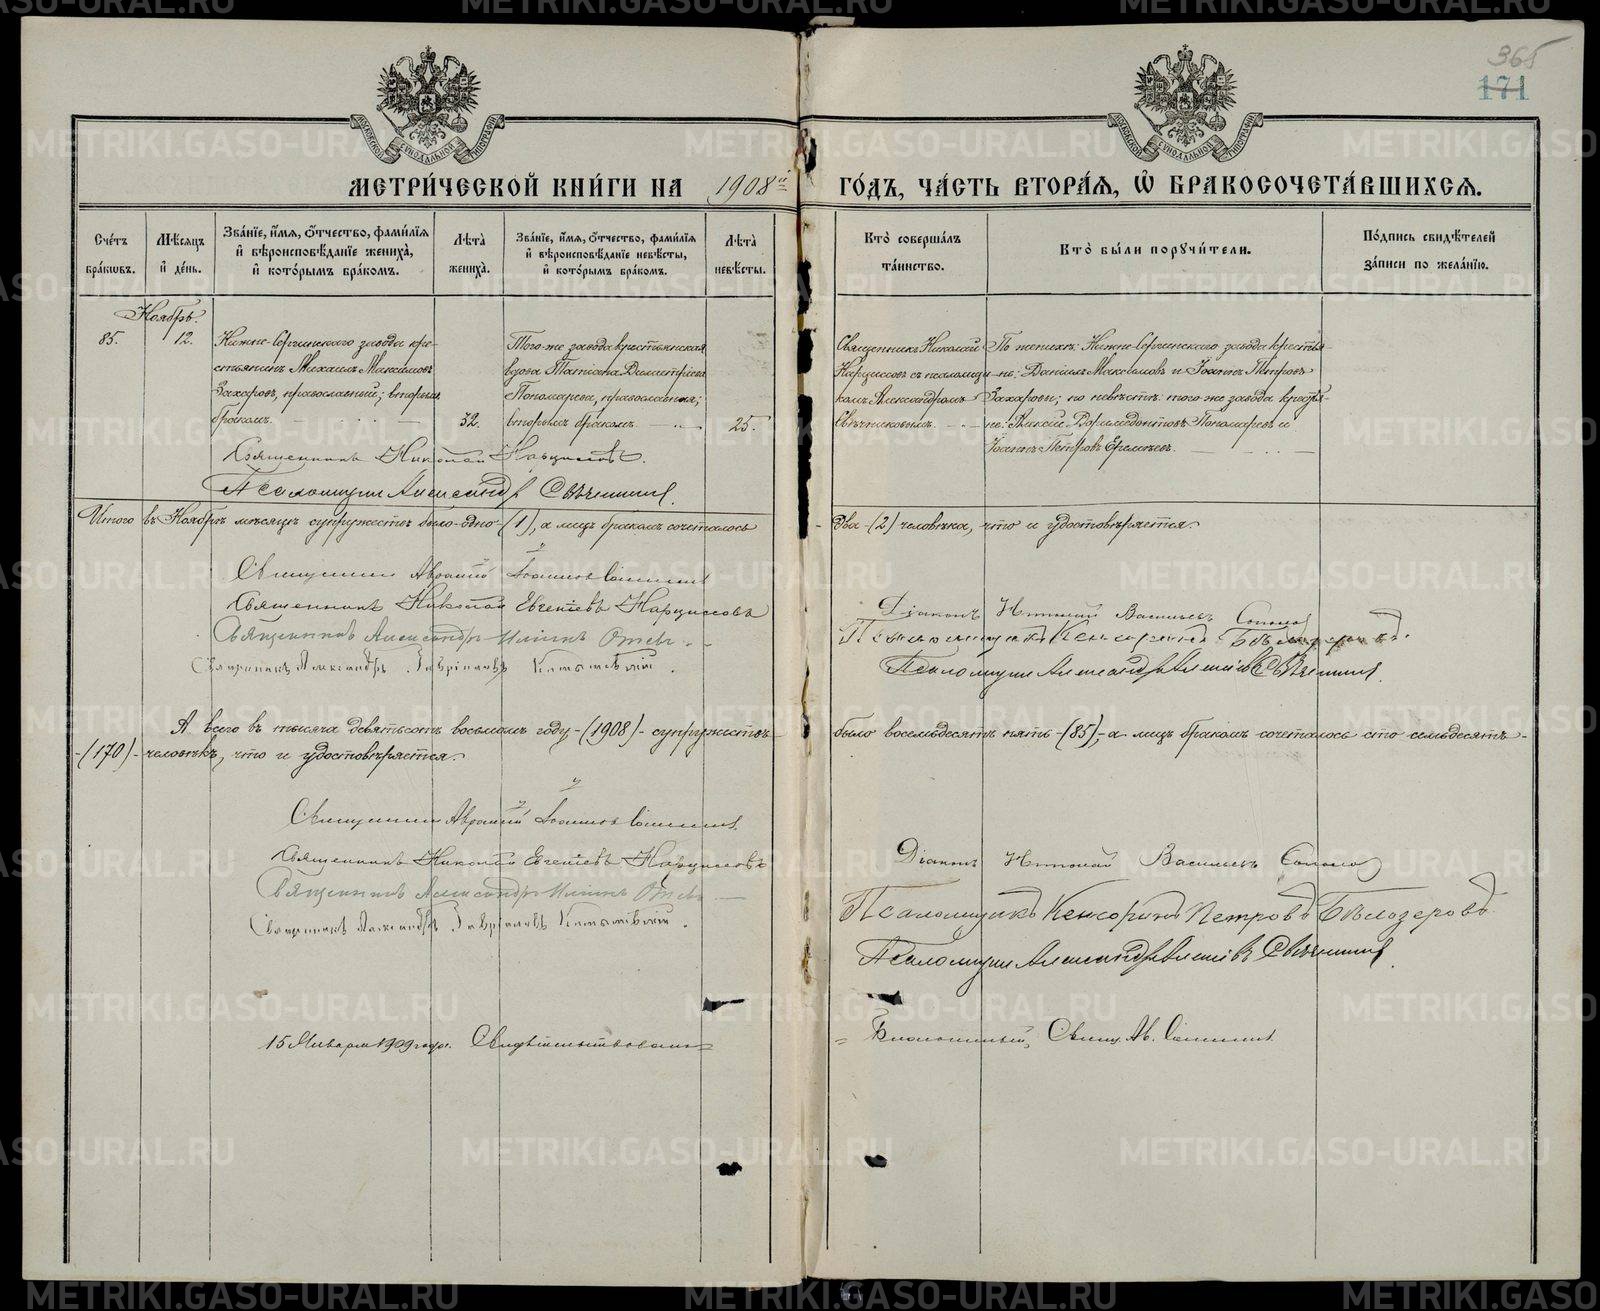 365
171
МОСКОВСКОЙ СѴНОДАЛЬНОЙ ТИПОГРАФІИ
МОСКОВСКОЙ СѴНОДАЛЬНОЙ ТИПОГРАФІИ
МЕТРИ́ЧЕСКОЙ КНИ́ГИ НА 1908й ГО́ДЪ, ЧА́СТЬ ВТОРА́Я, Ѡ҆ БРАКОСОЧЕТА́ВШИХСЯ.
Сче́тъ бра́ковъ.
Мѣ́сяцъ и҆ де́нь.
Зва́нїе, и҆́мя, ѻ҆́тчество, фами́лїя и҆ вѣроисповѣ́данїе жениха̀, и҆ кото́рымъ бра́комъ.
Лѣ́та жениха̀.
Зва́нїе, и҆́мя, ѻ҆́тчество, фами́лїя и҆ вѣроисповѣ́данїе невѣ́сты, и҆ кото́рымъ бра́комъ.
Лѣ́та невѣ́сты.
Кто̀ соверша́лъ та́инство.
Кто̀ бы́ли порꙋчи́тели.
По́дпись свидѣ́телей за́писи по жела́нїю.
Ноябрь.
85.
12.
Нижне-Сергинскаго завода кре-
стьянинъ Михаилъ Максимовъ
Захаровъ, православный; вторымъ
бракомъ.
32.
Того-же завода крестьянская
вдова Татіана Димитріева
Пономарева, православная;
вторымъ бракомъ.
25.
Священникъ Николай
Нарциссовъ съ псаломщи-
комъ Александромъ
Свѣчниковымъ.
По женихѣ: Нижне-Сергинскаго завода крестья-
не: Даніилъ Максимовъ и Іоаннъ Петровъ
Захаровы; по невѣстѣ: того-же завода крестья-
не: Алексій Пономаревъ и
Іоаннъ Петровъ
Священникъ Николай Нарциссовъ.
Псаломщикъ Александръ Свѣчниковъ.
Итого въ Ноябрѣ мѣсяцѣ супружествъ было-одно-(1), а лицъ бракомъ сочеталось
два-(2) человѣка, что и удостовѣряется.
Священникъ Авраамій Іоанновъ
Священникъ Николай Евгеніевъ Нарциссовъ
Священникъ Александръ Ильинъ
Священникъ Александръ Гавріиловъ
Діаконъ Николай Васильевъ
Псаломщикъ Кенсоринъ Бѣлозеровъ.
Псаломщикъ Александръ Алексѣевъ Свѣчниковъ.
А всего въ тысяча девятьсотъ восьмомъ году-(1908)-супружествъ
было восемьдесятъ пять-(85),-а лицъ бракомъ сочеталось сто семьдесятъ-
-(170)-человѣкъ, что и удостовѣряется.
Священникъ Авраамій Іоанновъ
Священникъ Николай Евгеніевъ Нарциссовъ
Священникъ Александръ Ильинъ
Священникъ Александръ Гавріиловъ
Діаконъ Николай Васильевъ
Псаломщикъ Кенсоринъ Петровъ Бѣлозеровъ
Псаломщикъ Александръ Алексѣевъ Свѣчниковъ.
15 Января 1909 года. Свидѣтельствовалъ
Благочинный, Свящ. Ав.
METRIKI.GASO-URAL.RU